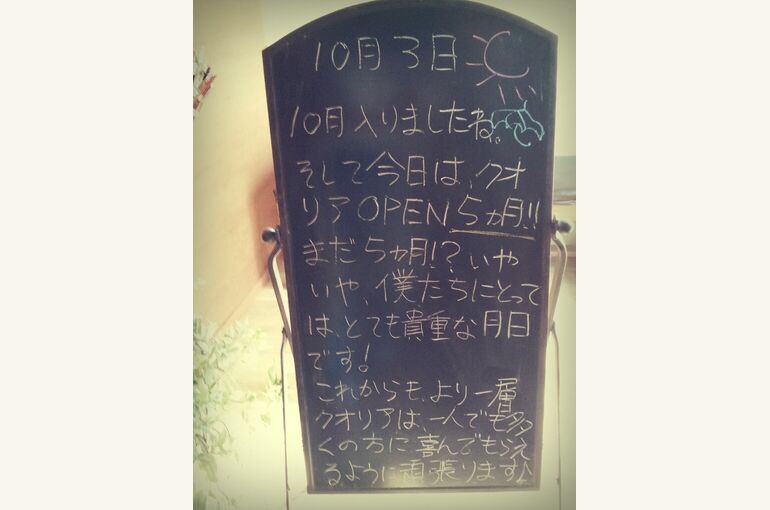 10月3日
10月入りましたね。
そして今日は、クオ
リアOPEN5ヵ月!!
まだ5ヵ月!?いや
いや、僕たちにとって
は、とても貴重な月日
です!
これからも、より一層
クオリアは、一人でも多
くの方に喜んでもらえ
るように頑張ります♪